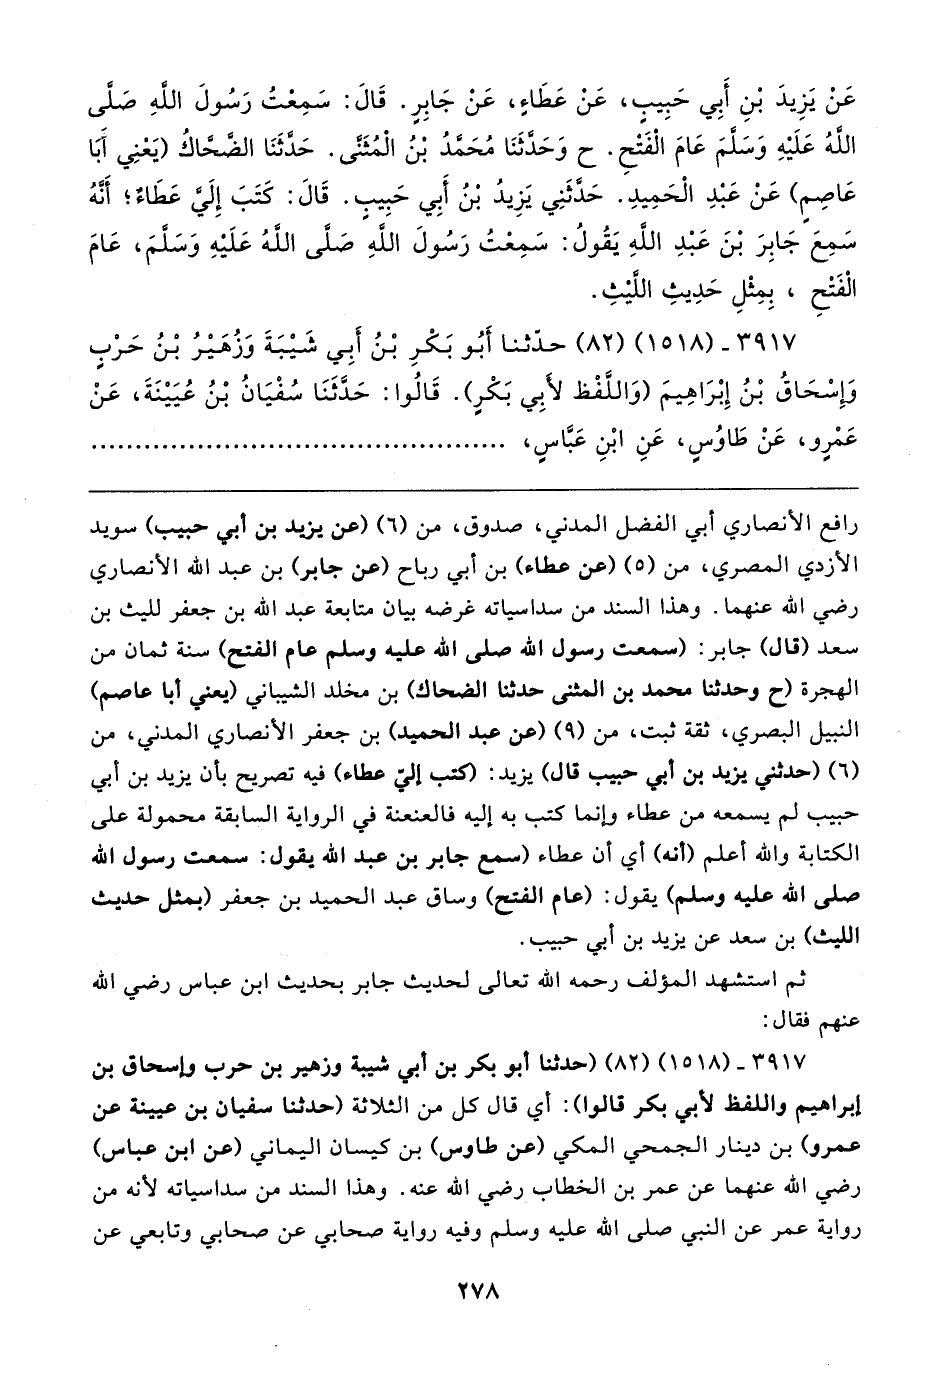 عَنْ يَزِيدَ بْنِ أَبِي حَبِيبٍ، عَنْ عَطَاءٍ، عَنْ جَابِرٍ. قَالَ: سَمِعْتُ رَسُولَ اللَّهِ صَلَّى
اللَّهُ عَلَيْهِ وَسَلَّمَ عَامَ الْفَتْحِ. ح وَحَدَّثَنَا مُحَمَّدُ بْنُ الْمُثَنَّى. حَدَّثَنَا الضَّحَّاكُ (يَعْنِي أَبَا
عَاصِمٍ) عَنْ عَبْدِ الْحَمِيدِ. حَدَّثَنِي يَزِيدُ بْنُ أَبِي حَبِيبٍ. قَالَ: كَتَبَ إِلَيَّ عَطَاءٌ؛ أَنَّهُ
سَمِعَ جَابِرَ بْنَ عَبْدِ اللَّهِ يَقُولُ: سَمِعْتُ رَسُولَ اللَّهِ صَلَّى اللَّهُ عَلَيْهِ وَسَلَّمَ، عَامَ
الْفَتْحِ ، بِمِثْلِ حَدِيثِ اللَّيْثِ.
٣٩١٧ ـ (١٥١٨) (٨٢) حدّثنا أَبُو بَكْرِ بْنُ أَبِي شَيْبَةَ وَزُهَيْرُ بْنُ حَرْبٍ
وَإِسْحَاقُ بْنُ إِبْرَاهِيمَ (وَاللَّفْظ لأَبِي بَكْرٍ). قَالُوا: حَدَّثَنَا سُفْيَانُ بْنُ عُيَيْنَةَ، عَنْ
عَمْرٍو، عَنْ طَاوُسٍ، عَنِ ابْنِ عَبَّاسٍ، ..............................................
رافع الأنصاري أبي الفضل المدني، صدوق، من (٦) (عن يزيد بن أبي حبيب) سويد
الأزدي المصري، من (٥) (عن عطاء) بن أبي رباح (عن جابر) بن عبد الله الأنصاري
رضي الله عنهما. وهذا السند من سداسياته غرضه بيان متابعة عبد الله بن جعفر لليث بن
سعد (قال) جابر: (سمعت رسول الله صلى الله عليه وسلم عام الفتح) سنة ثمان من
الهجرة (ح وحدثنا محمد بن المثنى حدثنا الضحاك) بن مخلد الشيباني (يعني أبا عاصم)
النبيل البصري، ثقة ثبت، من (٩) (عن عبد الحميد) بن جعفر الأنصاري المدني، من
(٦) (حدثني يزيد بن أبي حبيب قال) يزيد: (كتب إليّ عطاء) فيه تصريح بأن يزيد بن أبي
حبيب لم يسمعه من عطاء وإنما كتب به إليه فالعنعنة في الرواية السابقة محمولة على
الكتابة والله أعلم (أنه) أي أن عطاء (سمع جابر بن عبد الله يقول: سمعت رسول الله
صلى الله عليه وسلم) يقول: (عام الفتح) وساق عبد الحميد بن جعفر (بمثل حديث
الليث) بن سعد عن يزيد بن أبي حبيب.
ثم استشهد المؤلف رحمه الله تعالى لحديث جابر بحديث ابن عباس رضي الله
عنهم فقال:
٣٩١٧ ـ (١٥١٨) (٨٢) (حدثنا أبو بكر بن أبي شيبة وزهير بن حرب وإسحاق بن
إبراهيم واللفظ لأبي بكر قالوا): أي قال كل من الثلاثة (حدثنا سفيان بن عيينة عن
عمرو) بن دينار الجمحي المكي (عن طاوس) بن كيسان اليماني (عن ابن عباس)
رضي الله عنهما عن عمر بن الخطاب رضي الله عنه. وهذا السند من سداسياته لأنه من
رواية عمر عن النبي صلى الله عليه وسلم وفيه رواية صحابي عن صحابي وتابعي عن
٢٧٨